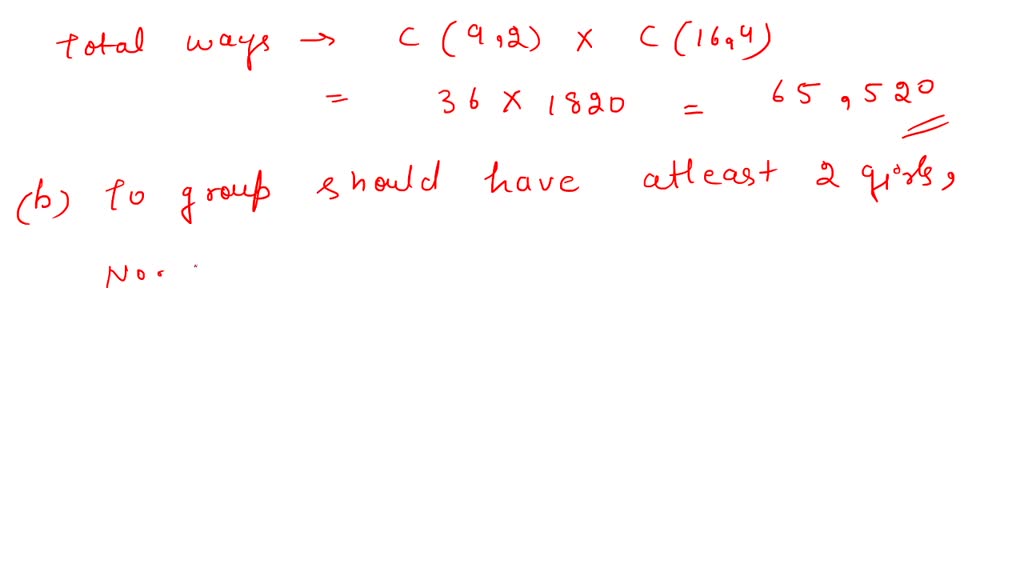 Total ways → C (9,2) × C (16,4)
= 36 × 1820 = 65,520
(b) To group should have atleast 2 girls,
No.